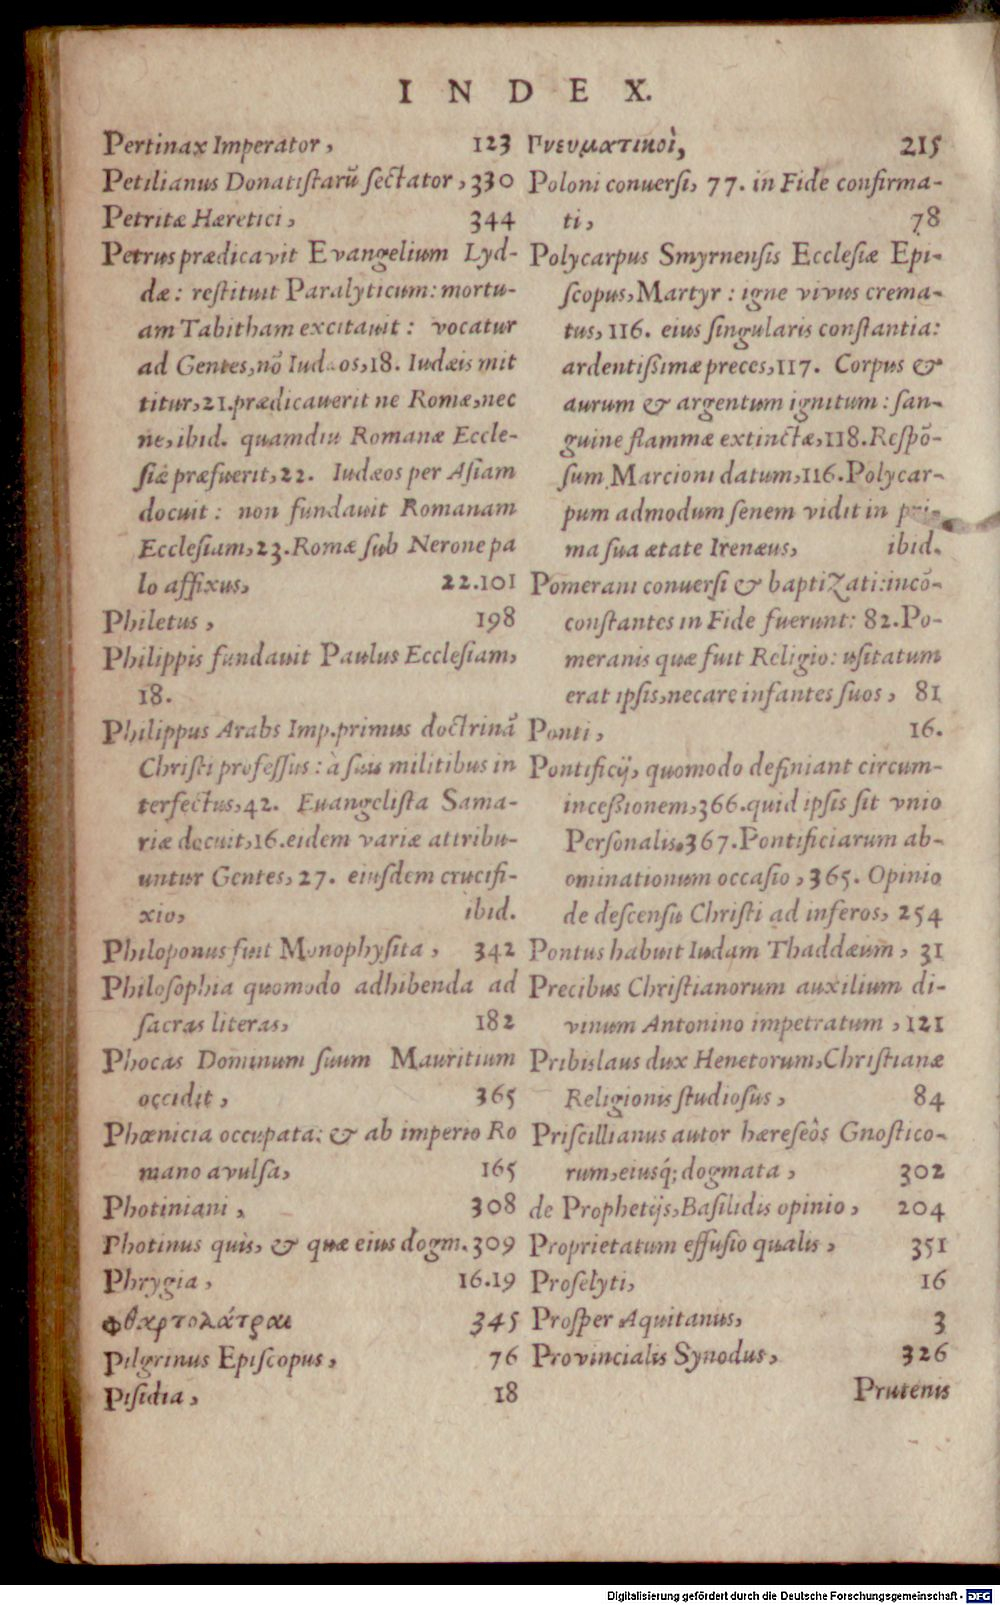 INDEX.
Pertinax Imperator, 123
Petilianus Donatistarū sectator, 330
Petritæ Hæretici, 344
Petrus prædicavit Evangelium Lyd-
dæ: restituit Paralyticum: mortu-
am Tabitham excitauit: vocatur
ad Gentes, nō Iudæos, 18. Iudæis mit
titur, 21. prædicauerit ne Romæ, nec
ne, ibid. quamdiu Romanæ Eccle-
siæ præfuerit, 22. Iudæos per Asiam
docuit: non fundauit Romanam
Ecclesiam, 23. Romæ sub Nerone pa
lo affixus, 22.101
Philetus, 198
Philippis fundauit Paulus Ecclesiam,
18.
Philippus Arabs Imp. primus doctrinā
Christi professus: à suis militibus in
terfectus, 42. Euangelista Sama-
riæ docuit, 16. eidem variæ attribu-
untur Gentes, 27. eiusdem crucifi-
xio, ibid.
Philoponus fuit Monophysita, 342
Philosophia quomodo adhibenda ad
sacras literas, 182
Phocas Dominum suum Mauritium
occidit, 365
Phœnicia occupata: & ab imperio Ro
mano avulsa, 165
Photiniani, 308
Photinus quis, & quæ eius dogm. 309
Phrygia, 16.19
Φθαρτολάτραι 345
Pilgrinus Episcopus, 76
Pisidia, 18
Πνευματικοὶ, 215
Poloni conuersi, 77. in Fide confirma-
ti, 78
Polycarpus Smyrnensis Ecclesiæ Epi-
scopus, Martyr: igne vivus crema-
tus, 116. eius singularis constantia:
ardentissimæ preces, 117. Corpus &
aurum & argentum ignitum: san-
guine flammæ extinctæ, 118. Respō-
sum Marcioni datum, 116. Polycar-
pum admodum senem vidit in pri-
ma sua ætate Irenæus, ibid.
Pomerani conuersi & baptizati: incō-
constantes in Fide fuerunt: 82. Po-
meranis quæ fuit Religio: usitatum
erat ipsis, necare infantes suos, 81
Ponti, 16.
Pontificij, quomodo definiant circum-
incessionem, 366. quid ipsis sit vnio
Personalis. 367. Pontificiarum ab-
ominationum occasio, 365. Opinio
de descensu Christi ad inferos, 254
Pontus habuit Iudam Thaddæum, 31
Precibus Christianorum auxilium di-
vinum Antonino impetratum, 121
Pribislaus dux Henetorum, Christianæ
Religionis studiosus, 84
Priscillianus autor hæreseôs Gnostico-
rum, eiusq́; dogmata, 302
de Prophetijs, Basilidis opinio, 204
Proprietatum effusio qualis, 351
Proselyti, 16
Prosper Aquitanus, 3
Provincialis Synodus, 326
Prutenis
Digitalisierung gefördert durch die Deutsche Forschungsgemeinschaft - DFG